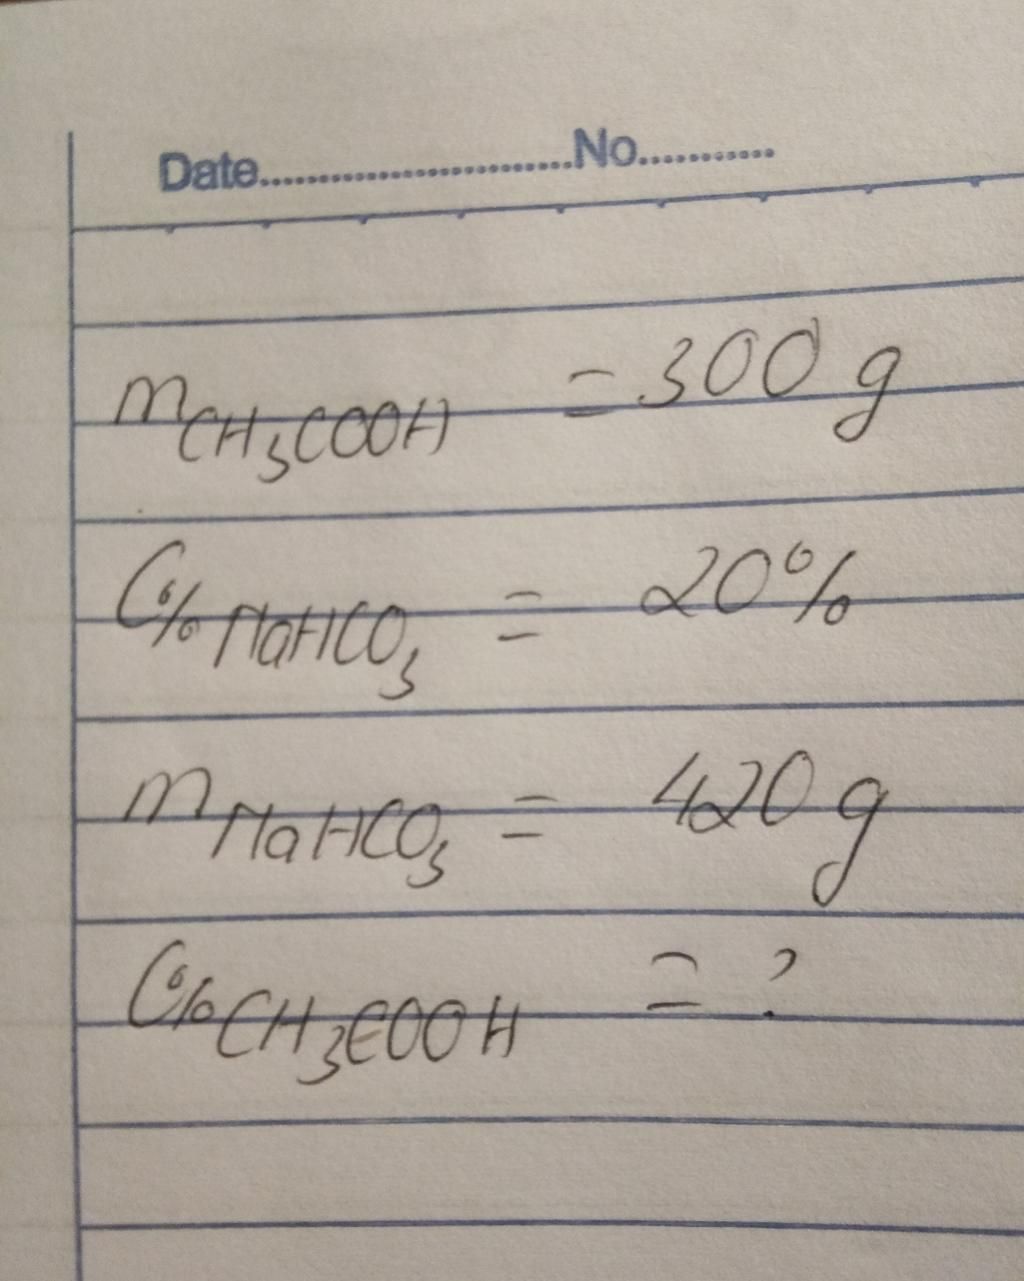 Date........................No...........
mCH₃COOH = 300 g
C% NaHCO₃ = 20%
m NaHCO₃ = 420 g
C% CH₃COOH = ?